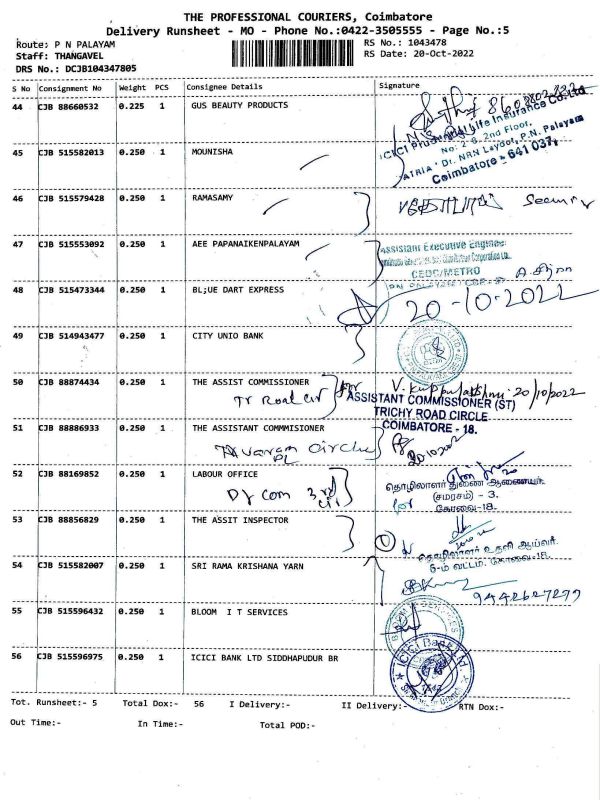 THE PROFESSIONAL COURIERS, Coimbatore
Delivery Runsheet - MO - Phone No.:0422-3505555 - Page No.:5
Route: P N PALAYAM
RS No.: 1043478
Staff: THANGAVEL
RS Date: 20-Oct-2022
DRS No.: DCJB104347805
S No Consignment No Weight PCS Consignee Details Signature
44 CJB 88660532 0.225 1 GUS BEAUTY PRODUCTS
ICICI Prudential Life Insurance Co. Ltd
2nd Floor,
ATRIA, Dr. NRN Layout, P.N. Palayam
Coimbatore - 641 037.
45 CJB 515582013 0.250 1 MOUNISHA
46 CJB 515579428 0.250 1 RAMASAMY
47 CJB 515553092 0.250 1 AEE PAPANAIKENPALAYAM
Assistant Executive Engineer
CEDC/METRO
48 CJB 515473344 0.250 1 BL;UE DART EXPRESS
20-10-2022
49 CJB 514943477 0.250 1 CITY UNIO BANK
50 CJB 88874434 0.250 1 THE ASSIST COMMISSIONER
Tr Road Cir
20/10/2022
ASSISTANT COMMISSIONER (ST)
TRICHY ROAD CIRCLE
COIMBATORE - 18.
51 CJB 88886933 0.250 1 THE ASSISTANT COMMMISIONER
Circle
52 CJB 88169852 0.250 1 LABOUR OFFICE
Dy com 3rd
தொழிலாளர் துணை ஆணையர்
(சமரசம்) - 3.
for கோவை-18.
53 CJB 88856829 0.250 1 THE ASSIT INSPECTOR
தொழிலாளர் உதவி ஆய்வர்
6-ம் வட்டம், கோவை-18.
54 CJB 515582007 0.250 1 SRI RAMA KRISHANA YARN
9442627277
55 CJB 515596432 0.250 1 BLOOM I T SERVICES
56 CJB 515596975 0.250 1 ICICI BANK LTD SIDDHAPUDUR BR
ICICI Bank Ltd
Tot. Runsheet:- 5 Total Dox:- 56 I Delivery:- II Delivery:- RTN Dox:-
Out Time:- In Time:- Total POD:-